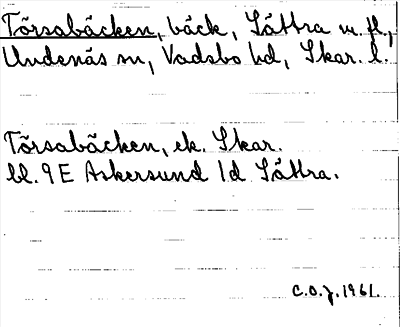 Törsabäcken, bäck, Sättra m. fl.,
Undenäs sn, Vadsbo hd, Skar. l.
Törsabäcken, ek. Skar.
bl. 9E Askersund 1d Sättra.
C.O.J. 1961.